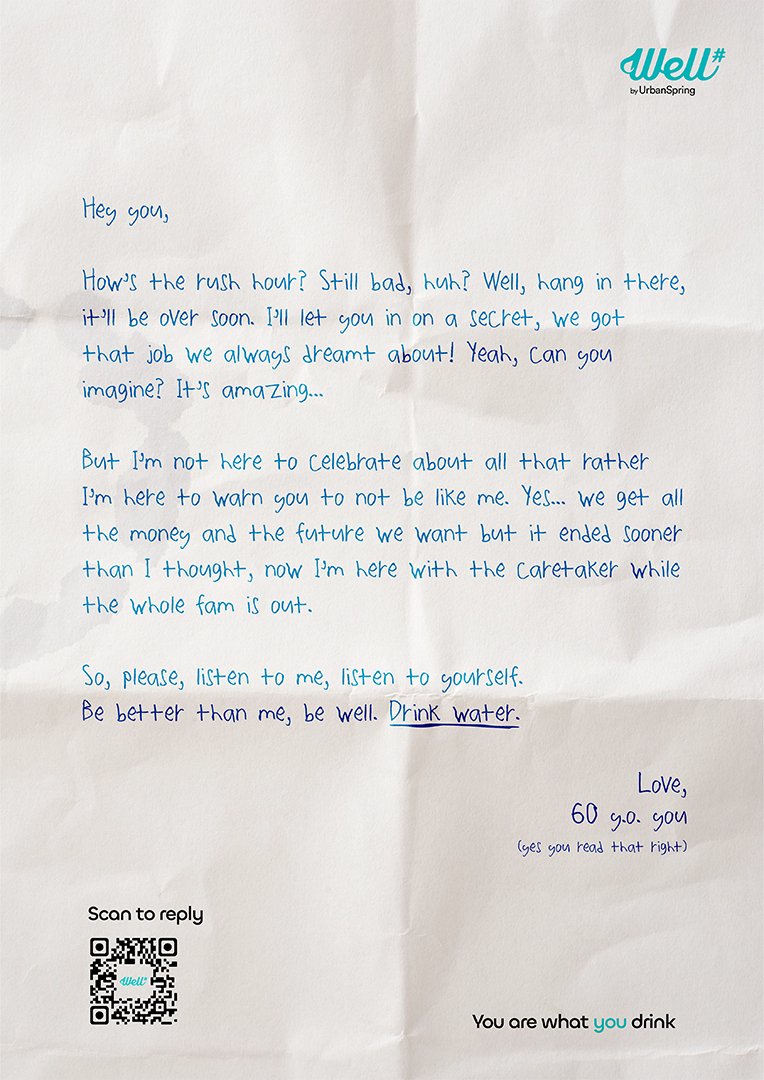 Well#
by UrbanSpring
Hey you,
How's the rush hour? Still bad, huh? Well, hang in there,
it'll be over soon. I'll let you in on a secret, we got
that job we always dreamt about! Yeah, can you
imagine? It's amazing...
But I'm not here to celebrate about all that rather
I'm here to warn you to not be like me. Yes... we get all
the money and the future we want but it ended sooner
than I thought, now I'm here with the caretaker while
the whole fam is out.
So, please, listen to me, listen to yourself.
Be better than me, be well. Drink water.
Love,
60 y.o. you
(yes you read that right)
Scan to reply
Well#
You are what you drink